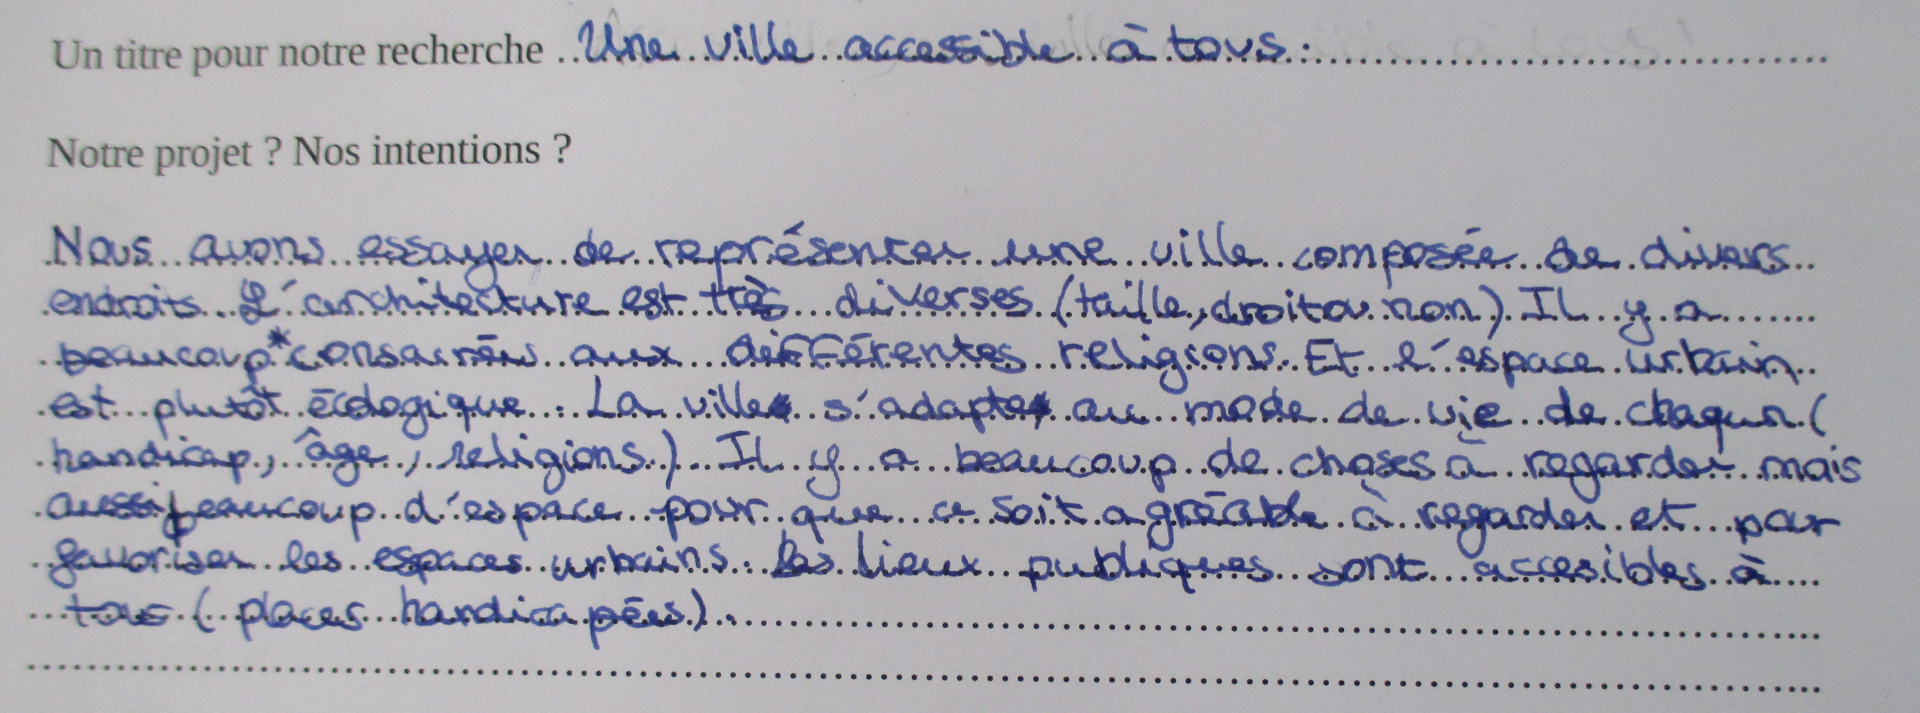 Un titre pour notre recherche Une ville accessible à tous.
Notre projet ? Nos intentions ?
Nous avons essayer de représenter une ville composée de divers
endroits. L'architecture est très diverses (taille, droit ou non). Il y a
beaucoup* consacrées aux différentes religions. Et l'espace urbain
est plutôt écologique. La ville s'adapte au mode de vie de chaqun (
handicap, âge, religions). Il y a beaucoup de choses à regarder mais
aussi beaucoup d'espace pour que ce soit agréable à regarder et pour
favoriser les espaces urbains. Les lieux publiques sont accesibles à
tous (places handicapées).